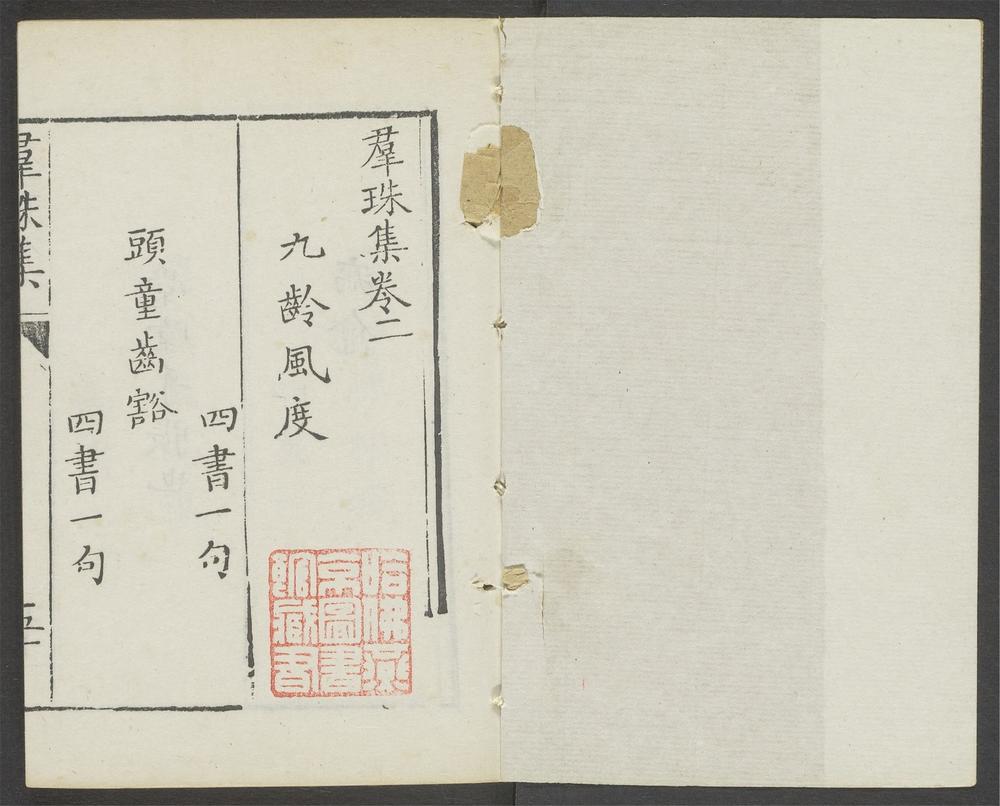 羣珠集卷二
九齡風度
四書一句
頭童齒豁
四書一句
羣珠集
五一
哈佛燕
京圖書
館藏書